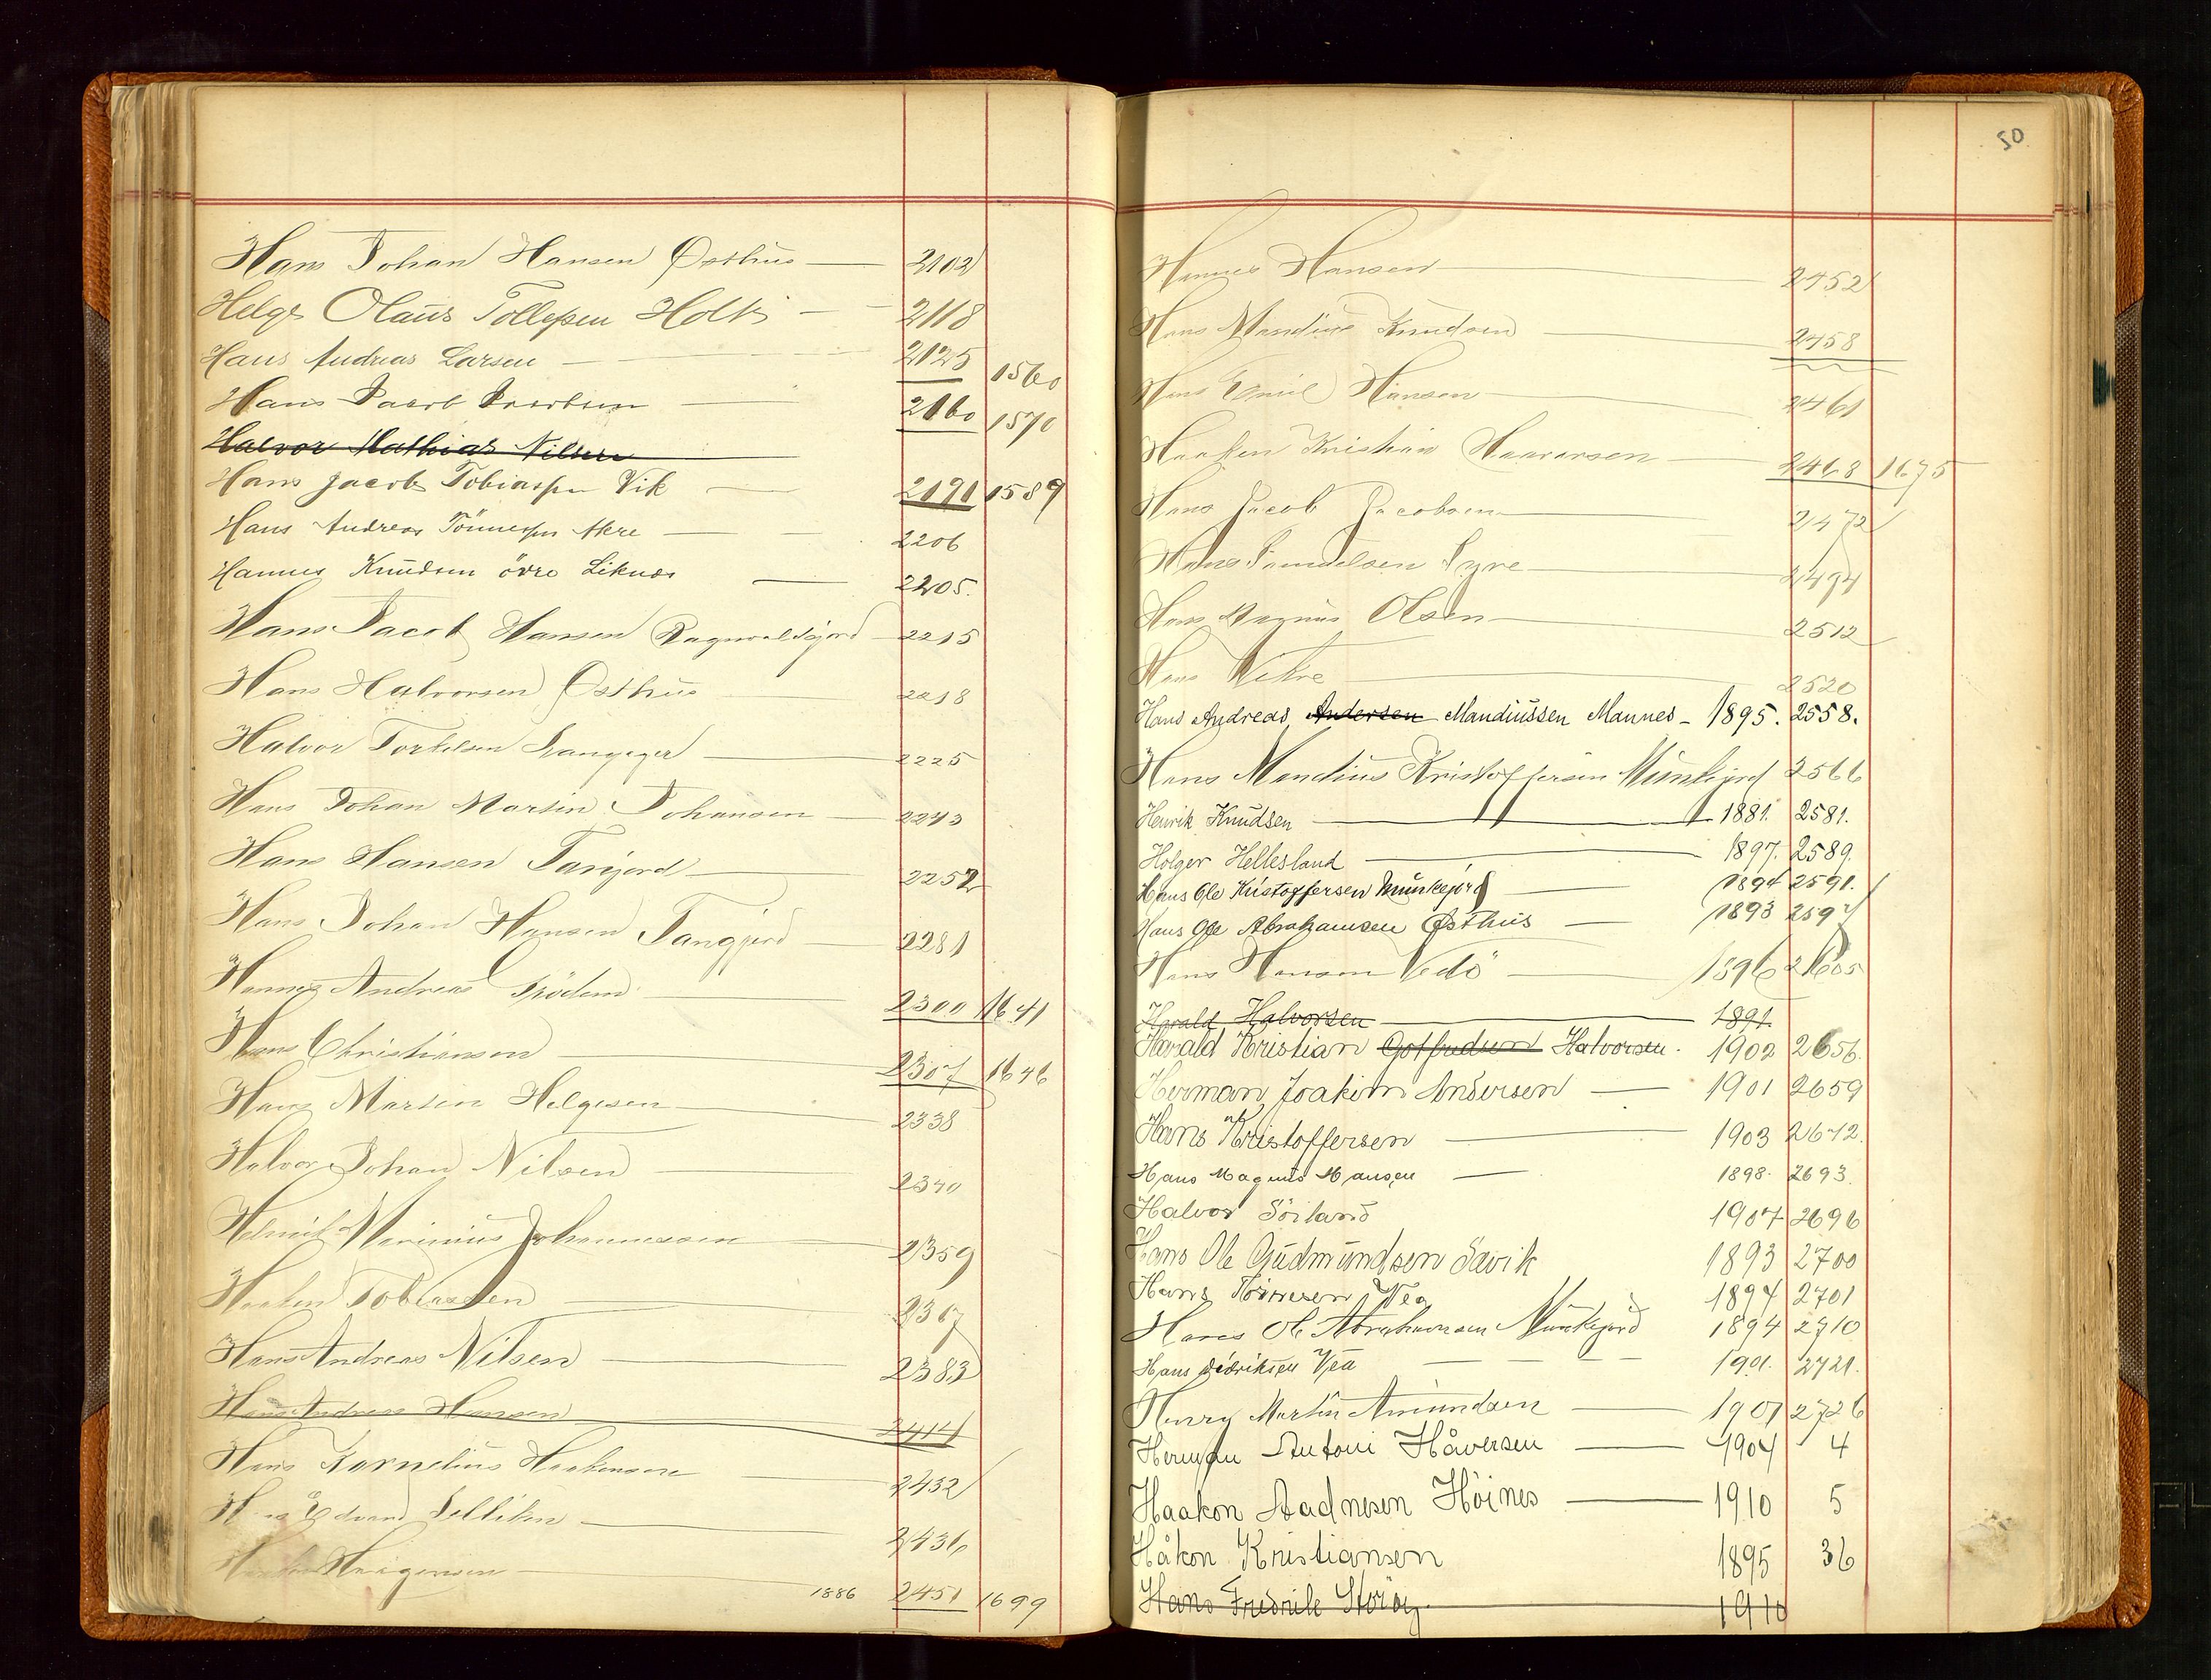 Hans Johan Hansen Østhus — 2102
Helge Olaus Tollefsen Holk — 2118
Hans Andreas Larsen — 2125 1560
Hans Jacob Jacobsen — 2160 1570
Halvor Mathias Nilsen —
Hans Jacob Tobiassen Vik — 2191 1589
Hans Andreas Tönnessen Akre — 2206
Hannes Knudsen övre Liknes — 2205.
Hans Jacob Hansen Ragnvaldsjord — 2215
Hans Halvorsen Østhus 2218
Halvor Torkelsen — 2225
Hans Johan Martin Johansen — 2243
Hans Hansen Tangjord — 2252
Hans Johan Hansen Tangjord 2281
Hannes Andreas — 2300 1641
Hans Christiansen — 2307 1646
Hans Martin Helgesen — 2338
Halvor Johan Nilsen — 2340
Helmik Marinius Johannessen — 2359
Haaken Tobiassen — 2367
Hans Andreas Nilsen — 2383
Hans Andreas Hansen — 2414
Hans Kornelius Haakensen — 2432
Edvard — 2436
— 1886 2451 1699
50
Hannes Hansen — 2452
Hans Mandius Knudsen — 2458
Hans Emil Hansen — 2461
Haaken Kristian Haavarsen — 2468 1675
Hans Jacob Jacobsen — 2472
Hans Samuelsen Syre — 2494
Hans Magnus Olsen — 2512
Hans Vikre — 2520
Hans Andreas Andersen Mandiussen Mannes - 1895. 2558.
Hans Mandius Kristoffersen Munkejord 2566
Henrik Knudsen — 1881. 2581.
Holger Hellesland — 1897. 2589.
Hans Ole Kristoffersen Munkejord — 1894 2591.
Hans Ole Abrahamsen Østhus — 1893 2597
Hans Hansen Vedö — 1896 2605
Harald Halvorsen — 1891.
Harald Kristian Gotfredsen Halvorsen. 1902 2656.
Herman Joakim Andersen — 1901 2659
Hans Kristoffersen — 1903 2672.
Hans Magnus Hansen — 1898. 2693.
Halvor Sörland 1907 2696
Hans Ole Gudmundsen Sævik 1893 2700
Hans Tönnesen Vea 1894 2701
Hans Ol. Abrahamsen Munkejord 1894 2710
Hans Didriksen Vea — 1901. 2721.
Henry Martin Amundsen — 1901 2726
Herman Antoni Håversen — 1904 4
Haakon Aadnesen Höines — 1910 5
Håkon Kristiansen 1895 36
Hans Fredrik Storöy. 1910